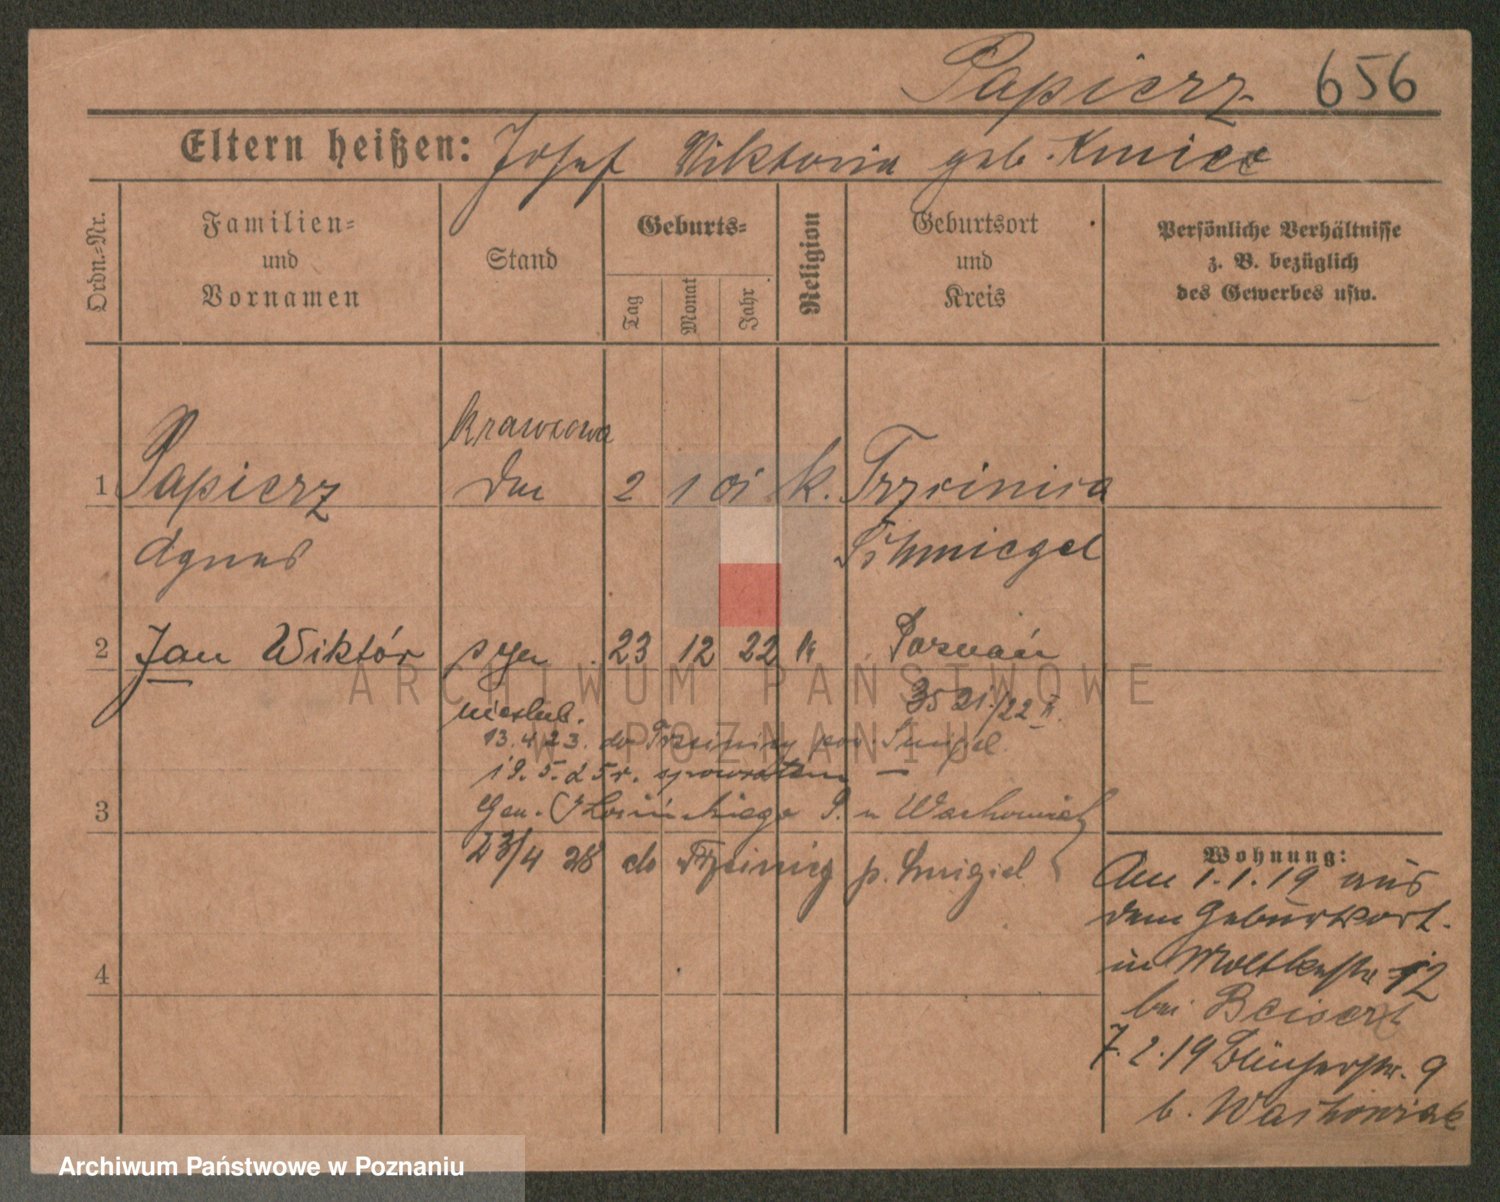 Papierz 656
Eltern heißen: Josef Viktoria geb. Kmiec
Ordn.-Nr.
Familien-
und
Vornamen
Stand
Geburts-
Tag
Monat
Jahr
Religion
Geburtsort
und
Kreis
Persönliche Verhältnisse
z. B. bezüglich
des Gewerbes usw.
Krawcowa
1 Papierz 2 1 01 k. Trzcinica
Agnes Schmiegel
2 Jan Wiktór syn 23 12 22 k Poznań
nieślub. 3521/22 II.
13.4.23. do Trzcinicy pow. Śmigiel.
19.5.25r. spowrotem —
3 Gen. Chłosińskiego 9. u Wachowiak
23/4 28 do Trzcinicy p. Śmigiel
Wohnung:
Am 1.1.19 aus
dem Geburtsort.
in Moltkestr. 12
bei Beisert
7.2.19 Blücherstr. 9
b. Wachowiak
4
ARCHIWUM PAŃSTWOWE
W POZNANIU
Archiwum Państwowe w Poznaniu